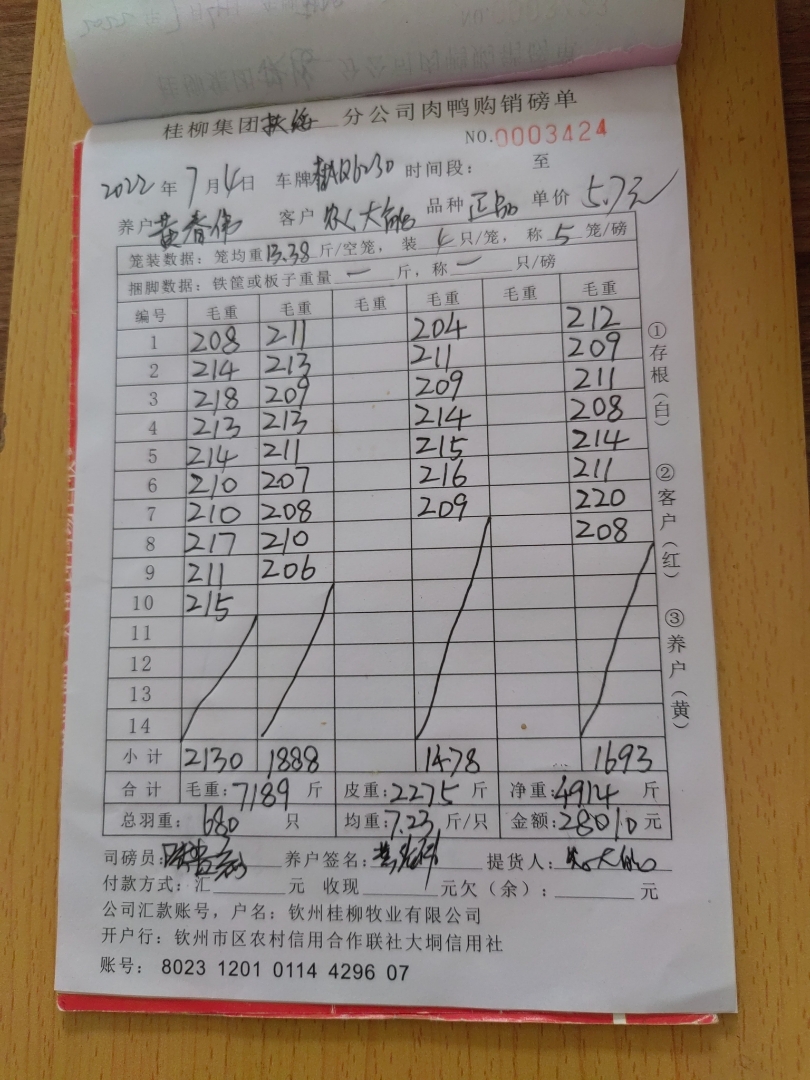 桂柳集团扶绥分公司肉鸭购销磅单
NO.0003424
2022年7月4日 车牌 6230 时间段: 至
养户黄春伟 客户 农大能 品种正品 单价 5.7元
笼装数据: 笼均重13.38斤/空笼, 装4只/笼, 称5笼/磅
捆脚数据: 铁筐或板子重量一斤, 称一只/磅
编号 毛重 毛重 毛重 毛重 毛重 毛重
1 208 211 204 212
2 214 213 211 209
3 218 209 209 211
4 213 213 214 208
5 214 211 215 214
6 210 207 216 211
7 210 208 209 220
8 217 210 208
9 211 206
10 215
11
12
13
14
小计 2130 1888 1478 1693
合计 毛重:7189斤 皮重:2275斤 净重:4914斤
总羽重: 680只 均重:7.23斤/只 金额:28010元
司磅员: 养户签名:黄春伟 提货人:农大能
付款方式: 汇 元 收现 元欠(余): 元
公司汇款账号, 户名: 钦州桂柳牧业有限公司
开户行: 钦州市区农村信用合作联社大垌信用社
账号: 8023 1201 0114 4296 07
①存根(白) ②客户(红) ③养户(黄)